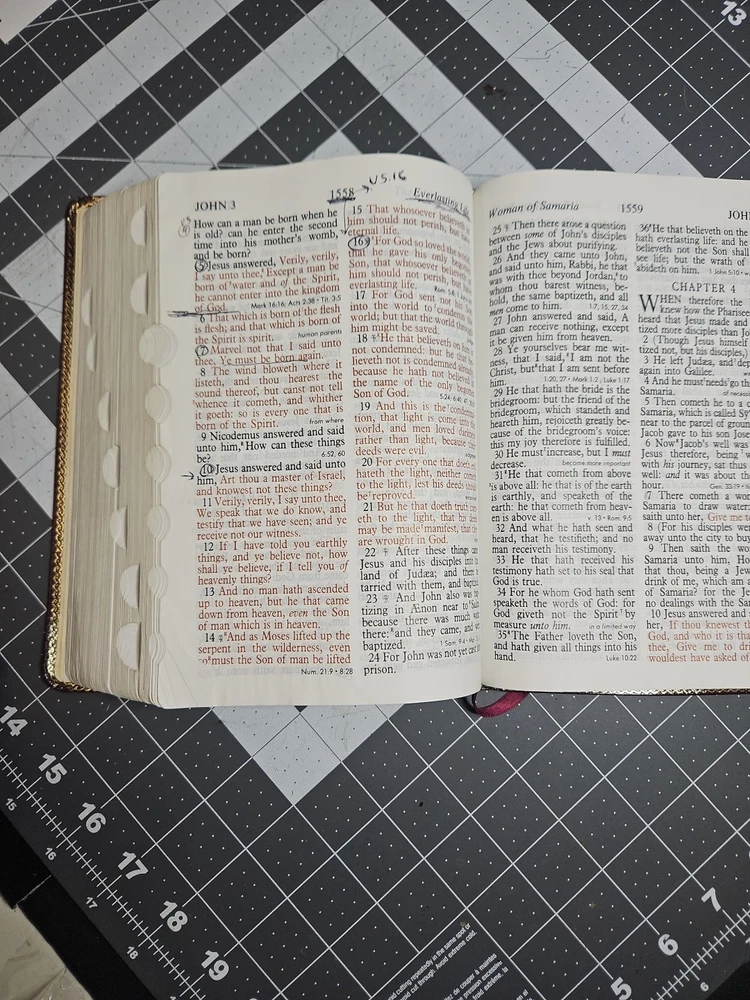 13
VS.16
JOHN 3
1558
Everlasting
How can a man be born when he
is old? can he enter the second
time into his mother's womb,
and be born?
5 Jesus answered, Verily, verily,
I say unto thee, Except a man be
born of water and of the Spirit,
he cannot enter into the kingdom
of God. Mark 16:16; Acts 2:38 • Tit. 3:5
6 That which is born of the flesh
is flesh; and that which is born of
the Spirit is spirit. human parents
7 Marvel not that I said unto
thee, Ye must be born again.
8 The wind bloweth where it
listeth, and thou hearest the
sound thereof, but canst not tell
whence it cometh, and whither
it goeth: so is every one that is
born of the Spirit. from where
9 Nicodemus answered and said
unto him, How can these things
be? 6:52, 60
10 Jesus answered and said unto
him, Art thou a master of Israel,
and knowest not these things?
11 Verily, verily, I say unto thee,
We speak that we do know, and
testify that we have seen; and ye
receive not our witness.
12 If I have told you earthly
things, and ye believe not, how
shall ye believe, if I tell you of
heavenly things?
13 And no man hath ascended
up to heaven, but he that came
down from heaven, even the Son
of man which is in heaven.
14 And as Moses lifted up the
serpent in the wilderness, even
so must the Son of man be lifted
Num. 21:9 • 8:28
15 That whosoever
him should not perish, but
eternal life.
16 For God so loved the
that he gave his only
Son, that whosoever
him should not perish, but
everlasting life. Rom. 5:8
17 For God sent not
into the world to condemn
world; but that the world
him might be saved.
18 He that believeth on him
not condemned: but he that
lieveth not is condemned
because he hath not believed
the name of the only
Son of God. 5:24; 6:40
19 And this is the condemna-
tion, that light is come into
world, and men loved
rather than light, because
deeds were evil.
20 For every one that doeth
hateth the light, neither
to the light, lest his deeds
be reproved.
21 But he that doeth truth
eth to the light, that his
may be made manifest, that
are wrought in God.
22 After these things
Jesus and his disciples into
land of Judæa; and there
tarried with them, and
23 And John also was
tizing in Ænon near to
because there was much
there: and they came, and
baptized. 1 Sam. 9:4
24 For John was not yet cast
prison.
Woman of Samaria
1559
25 Then there arose a question
between some of John's disciples
and the Jews about purifying.
26 And they came unto John,
and said unto him, Rabbi, he that
was with thee beyond Jordan, to
whom thou barest witness, be-
hold, the same baptizeth, and all
men come to him. 1:7, 15, 27, 34
27 John answered and said, A
man can receive nothing, except
it be given him from heaven.
28 Ye yourselves bear me wit-
ness, that I said, I am not the
Christ, but that I am sent before
him. 1:20, 27 • Mark 1:2, Luke 1:17
29 He that hath the bride is the
bridegroom: but the friend of the
bridegroom, which standeth and
heareth him, rejoiceth greatly be-
cause of the bridegroom's voice:
this my joy therefore is fulfilled.
30 He must increase, but I must
decrease. become more important
31 He that cometh from above
is above all: he that is of the earth
is earthly, and speaketh of the
earth: he that cometh from heav-
en is above all. v. 13 • Rom. 9:5
32 And what he hath seen and
heard, that he testifieth; and no
man receiveth his testimony.
33 He that hath received his
testimony hath set to his seal that
God is true.
34 For he whom God hath sent
speaketh the words of God: for
God giveth not the Spirit by
measure unto him. in a limited way
35 The Father loveth the Son,
and hath given all things into his
hand. Luke 10:22
36 He that believeth on the
hath everlasting life: and he
believeth not the Son shall
see life; but the wrath of
abideth on him. 1 John 5:10
CHAPTER 4
WHEN therefore the
knew how the Pharisees
heard that Jesus made and
tized more disciples than
2 (Though Jesus himself
tized not, but his disciples,)
3 He left Judæa, and
again into Galilee.
4 And he must needs go
Samaria. of necessity
5 Then cometh he to a
Samaria, which is called
near to the parcel of ground
Jacob gave to his son
6 Now Jacob's well was
Jesus therefore, being
with his journey, sat thus
well: and it was about the
hour. Gen. 33:19
7 There cometh a
Samaria to draw water:
saith unto her, Give me
8 (For his disciples
away unto the city to buy
9 Then saith the
Samaria unto him, How
that thou, being a Jew,
drink of me, which am
of Samaria? for the Jews
no dealings with the
10 Jesus answered and
her, If thou knewest
God, and who it is that
thee, Give me to
wouldest have asked of
14
15
16
17
18
19
15
16
17
18
19
7
6
5
6